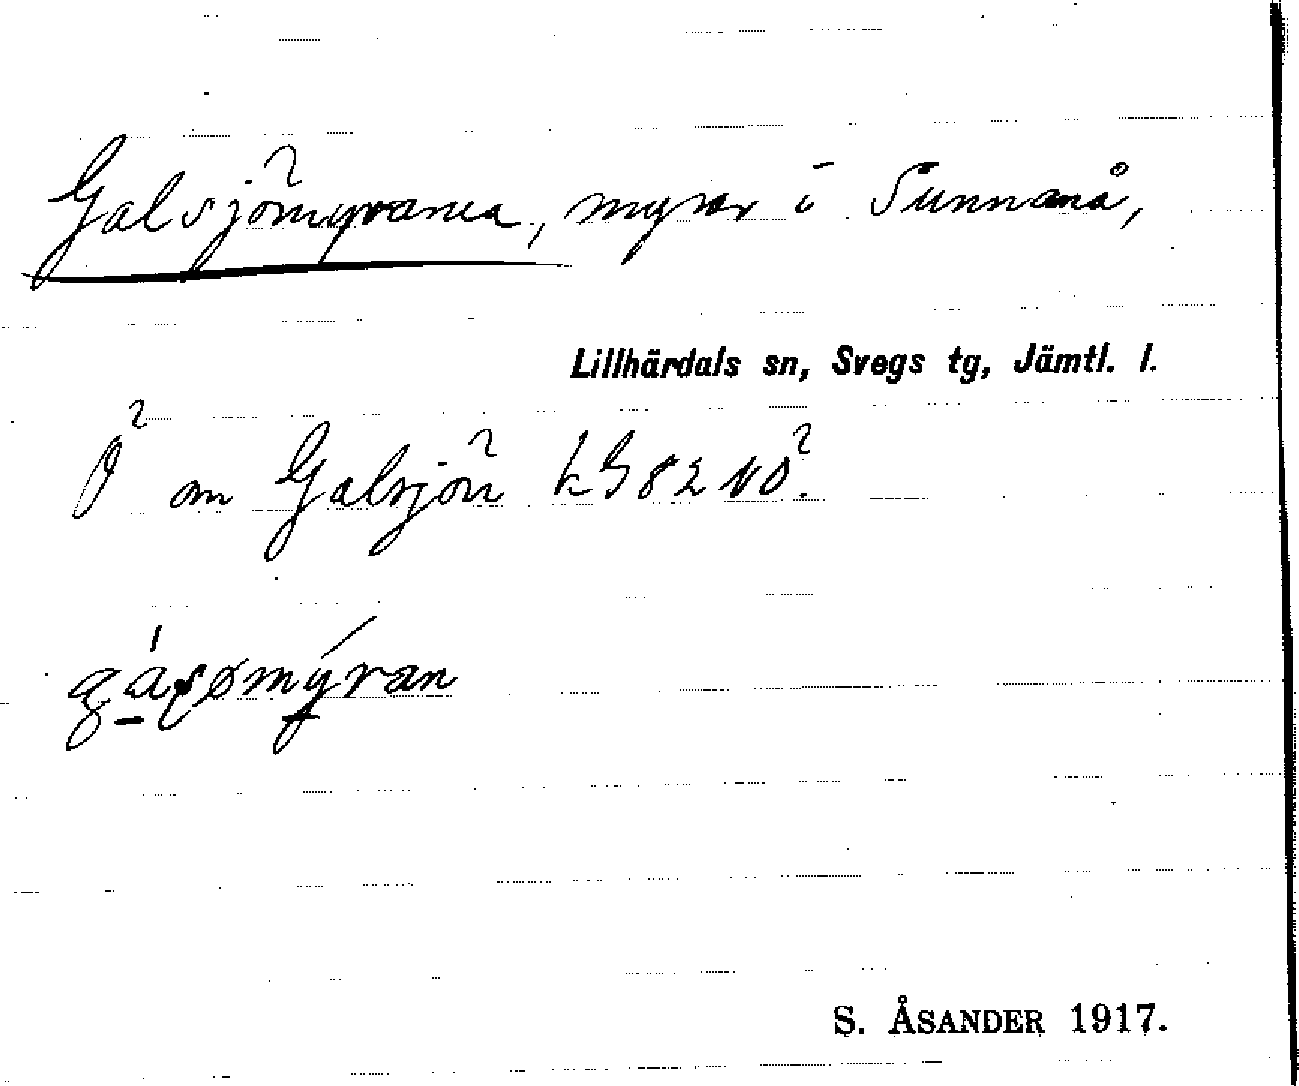 Galsjömyrarna, myrar i Sunnanå,
Lillhärdals sn, Svegs tg, Jämtl. l.
Ö om Galsjön LG 82 NO.
S. ÅSANDER 1917.